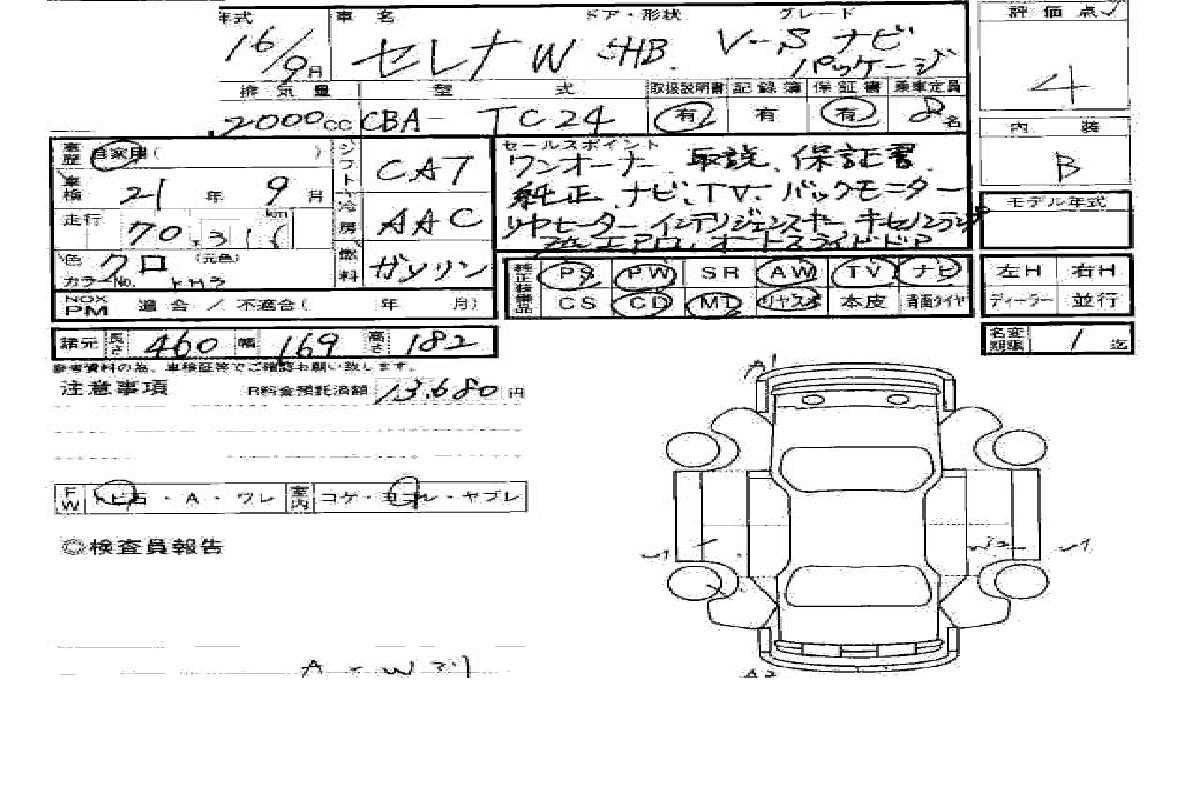 年式 車名 ドア・形状 グレード 評価点
16/9月 セレナ W 5HB V-S ナビパッケージ 4
排気量 型式 取扱説明書 記録簿 保証書 乗車定員
2000cc CBA-TC24 有 有 有 8名
内装
B
車歴 自家用( ) シフト CA7
車検 21年 9月 冷房 AAC
走行 70,316 km
色 クロ (元色) 燃料 ガソリン
カラーNo. KH3
NOX PM 適合/不適合( 年 月)
セールスポイント
ワンオーナー 取説、保証書
純正 ナビ、TV、バックモニター
リヤヒーター インテリジェンスキー キセノン
エアロ、オートスライドドア
モデル年式
純正装備品 PS PW SR AW TV ナビ
CS CD MD リヤスポ 本皮 背面タイヤ
左H 右H
ディーラー 並行
諸元 長さ 460 幅 169 高さ 182
名変期限 1 迄
参考資料の為、車検証等でご確認お願い致します。
注意事項 R料金預託済額 13,680円
FW トビ石・A・ワレ 室内 コゲ・ヨゴレ・ヤブレ
◎検査員報告
A1
A・W